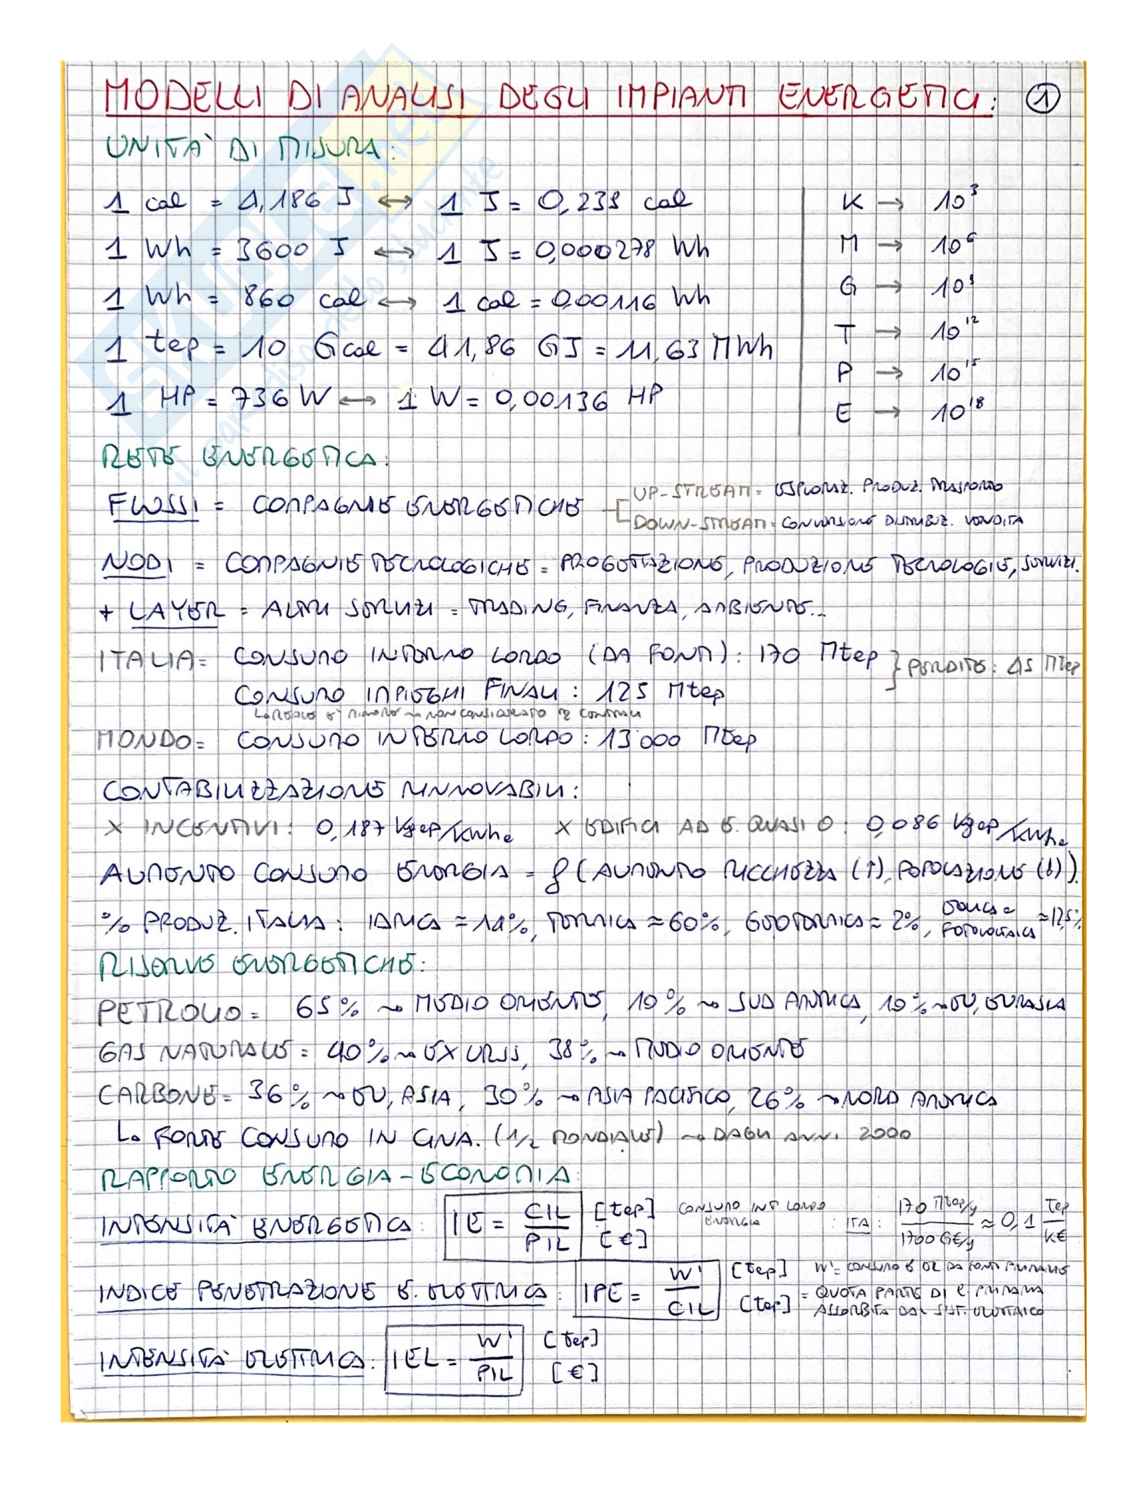 MODELLI DI ANALISI DEGLI IMPIANTI ENERGETICI: 1
UNITA' DI MISURA:
1 cal = 4,186 J ↔ 1 J = 0,239 cal
1 Wh = 3600 J ↔ 1 J = 0,000278 Wh
1 Wh = 860 cal ↔ 1 cal = 0,00116 Wh
1 tep = 10 Gcal = 41,86 GJ = 11,63 MWh
1 HP = 736 W ↔ 1 W = 0,00136 HP
K → 10³
M → 10⁶
G → 10⁹
T → 10¹²
P → 10¹⁵
E → 10¹⁸
RETE ENERGETICA:
FLUSSI = COMPAGNIE ENERGETICHE
UP-STREAM = ESPLORAZ. PRODUZ. TRASPORTO
DOWN-STREAM = CONVERSIONE DISTRIBUZ. VENDITA
NODI = COMPAGNIE TECNOLOGICHE = PROGETTAZIONE, PRODUZIONE TECNOLOGIE, SERVIZI.
+ LAYER = ALTRI SERVIZI = TRADING, FINANZA, AMBIENTE...
ITALIA = CONSUMO INTERNO LORDO (DA FONTI): 170 Mtep
CONSUMO IMPIEGHI FINALI: 125 Mtep
} PERDITE: 45 Mtep
MONDO = CONSUMO INTERNO LORDO: 13000 Mtep
CONTABILIZZAZIONE RINNOVABILI:
X INCENTIVI: 0,187 kgep/kWhe X EDIFICI AD E. QUASI 0: 0,086 kgep/kWhe
AUMENTO CONSUMO ENERGIA = f (AUMENTO RICCHEZZA (↑), POPOLAZIONE (↓)).
% PRODUZ. ITALIA: IDRICA ≈ 14%, TERMICA ≈ 60%, GEOTERMICA ≈ 2%, EOLICA e FOTOVOLTAICA ≈ 12,5%
RISERVE ENERGETICHE:
PETROLIO = 65% → MEDIO ORIENTE, 10% → SUD AMERICA, 10% → EU, EURASIA
GAS NATURALE = 40% → EX URSS, 38% → MEDIO ORIENTE
CARBONE = 36% → EU, ASIA, 30% → ASIA PACIFICO, 26% → NORD AMERICA
↳ FORTE CONSUMO IN CINA. (1/2 MONDIALE) → DAGLI ANNI 2000
RAPPORTO ENERGIA-ECONOMIA
INTENSITÀ ENERGETICA: IE = CIL/PIL [tep]/[€] CONSUMO INT LORDO ENERGIA : ITA: 170 Mtep/y / 1700 G€/y ≈ 0,1 tep/k€
INDICE PENETRAZIONE E. ELETTRICA: IPE = W'/CIL [tep]/[tep] W' = CONSUMO E EL DA FONTI PRIMARIE
= QUOTA PARTE DI E PRIMARIA
ASSORBITA DAL SIST. ELETTRICO
INTENSITÀ ELETTRICA: IEL = W'/PIL [tep]/[€]